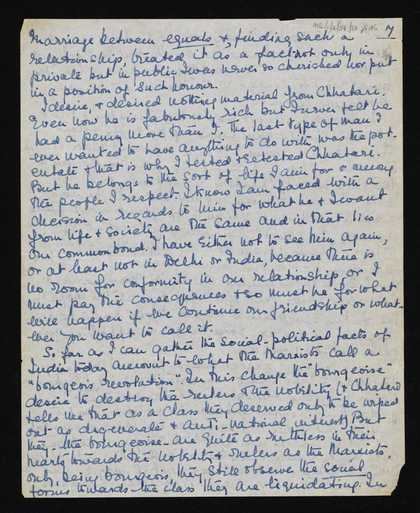 7
marriage between equals & finding such a
relationship, treated it as a fact not only in
private but in public. I was never so cherished nor put
in a position of such honour.
I desire, & desired nothing material from Chhatari.
Even now he is fabulously rich but I never felt he
had a penny more than I. The last type of man I
ever wanted to have anything to do with was the pot-
entate & that is why I tested & retested Chhatari.
But he belongs to the sort of life I aim for & among
the people I respect. I know I am faced with a
decision in regards to him for what he & I want
from life & society are the same and in that lies
our common bond. I have either not to see him again,
or at least not in Delhi or India, because there is
no room for conformity in our relationship or I
must pay the consequences & so must he for what
will happen if we continue our friendship or what-
ever you want to call it.
So far as I can gather the social-political facts of
India today amount to what the Marxists call a
"bourgeois revolution". In this change the bourgeoise
desire to destroy the rulers & the nobility, (& Chhatari
tells me that as a class they deserved only to be wiped
out as degenerate & anti-national witness) But
they - the bourgeoise - are quite as ruthless in their
towards the nobility & rulers as the Marxists.
only, being bourgeois, they still observe the social
forms towards the class they are liquidating. In